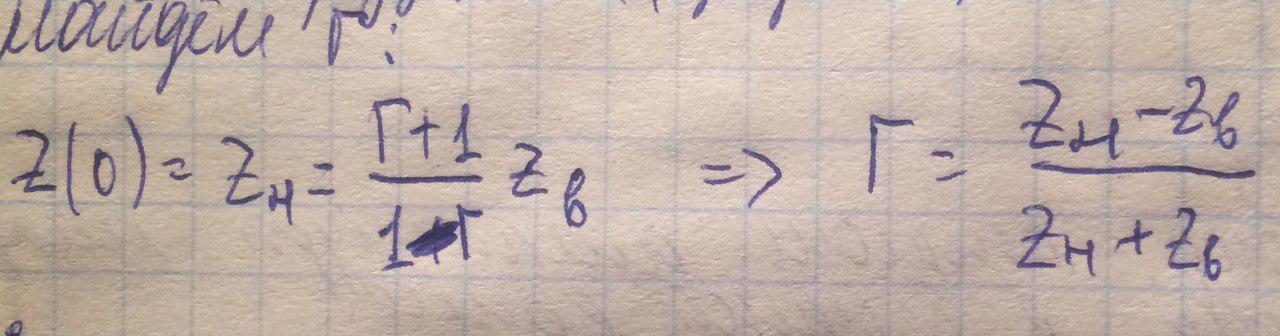 найдём Г:
Z(0) = Z_н = \frac{Г+1}{1-Г} Z_в => Г = \frac{Z_н - Z_в}{Z_н + Z_в}